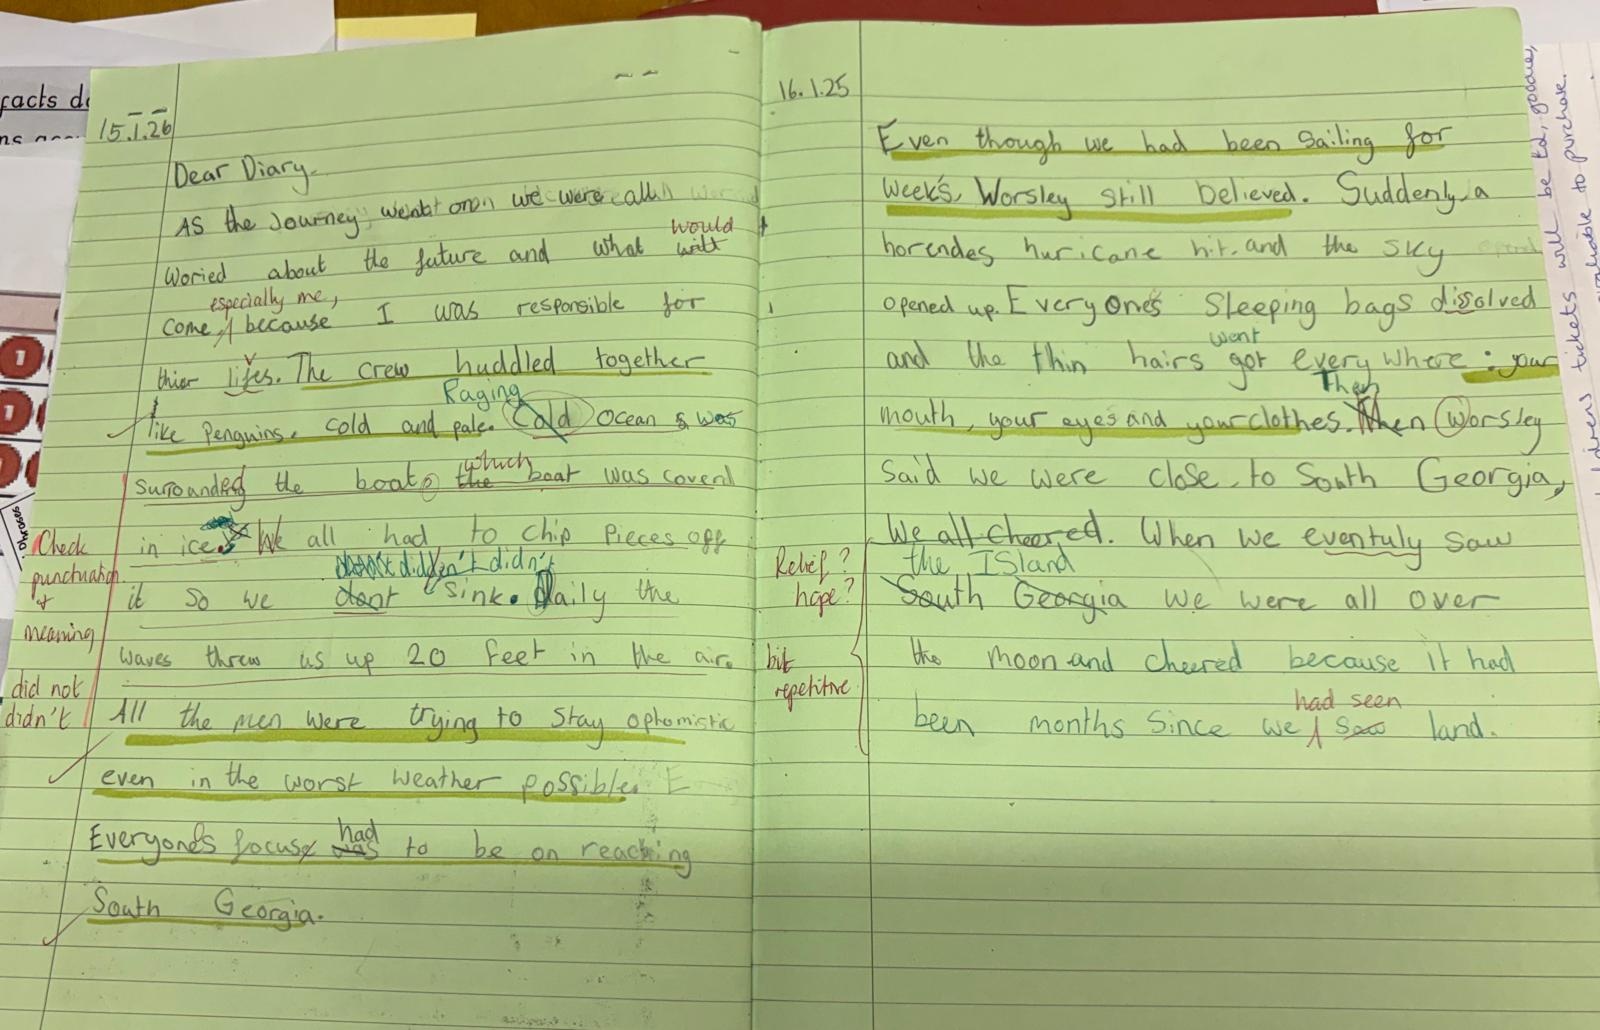 facts
15.1.26
Dear Diary.
As the Journey went on we were all
Woried about the future and what will would
especially me,
come, because I was responsible for
thier lifes. The crew huddled together
v
Raging
like Penguins. cold and pale. Cold Ocean & was
which
surrounded the boat. the boat was coverd
in ice. We all had to chip Pieces off
didden't didn't
it so we dont sink. Daily the
waves threw us up 20 feet in the air.
All the men were trying to stay ophomistic
even in the worst weather possible. E
had
Everyone's focus was to be on reaching
South Georgia.
Check
punctuation
+
meaning
did not
didn't
16.1.25
Even though we had been sailing for
week's, Worsley still believed. Suddenly, a
horendes huricane hit. and the sky
opened up. Everyone's sleeping bags disolved
went
and the thin hairs got every where : your
Then
mouth, your eyes and your clothes. Then Worsley
said we were close to South Georgia,
We all cheered. When we eventuly saw
the ISland
South Georgia we were all over
the moon and cheered because it had
had seen
been months since we saw land.
Relief?
hope?
bit
repetitive
Phrases
tickets will be
available to purchase.